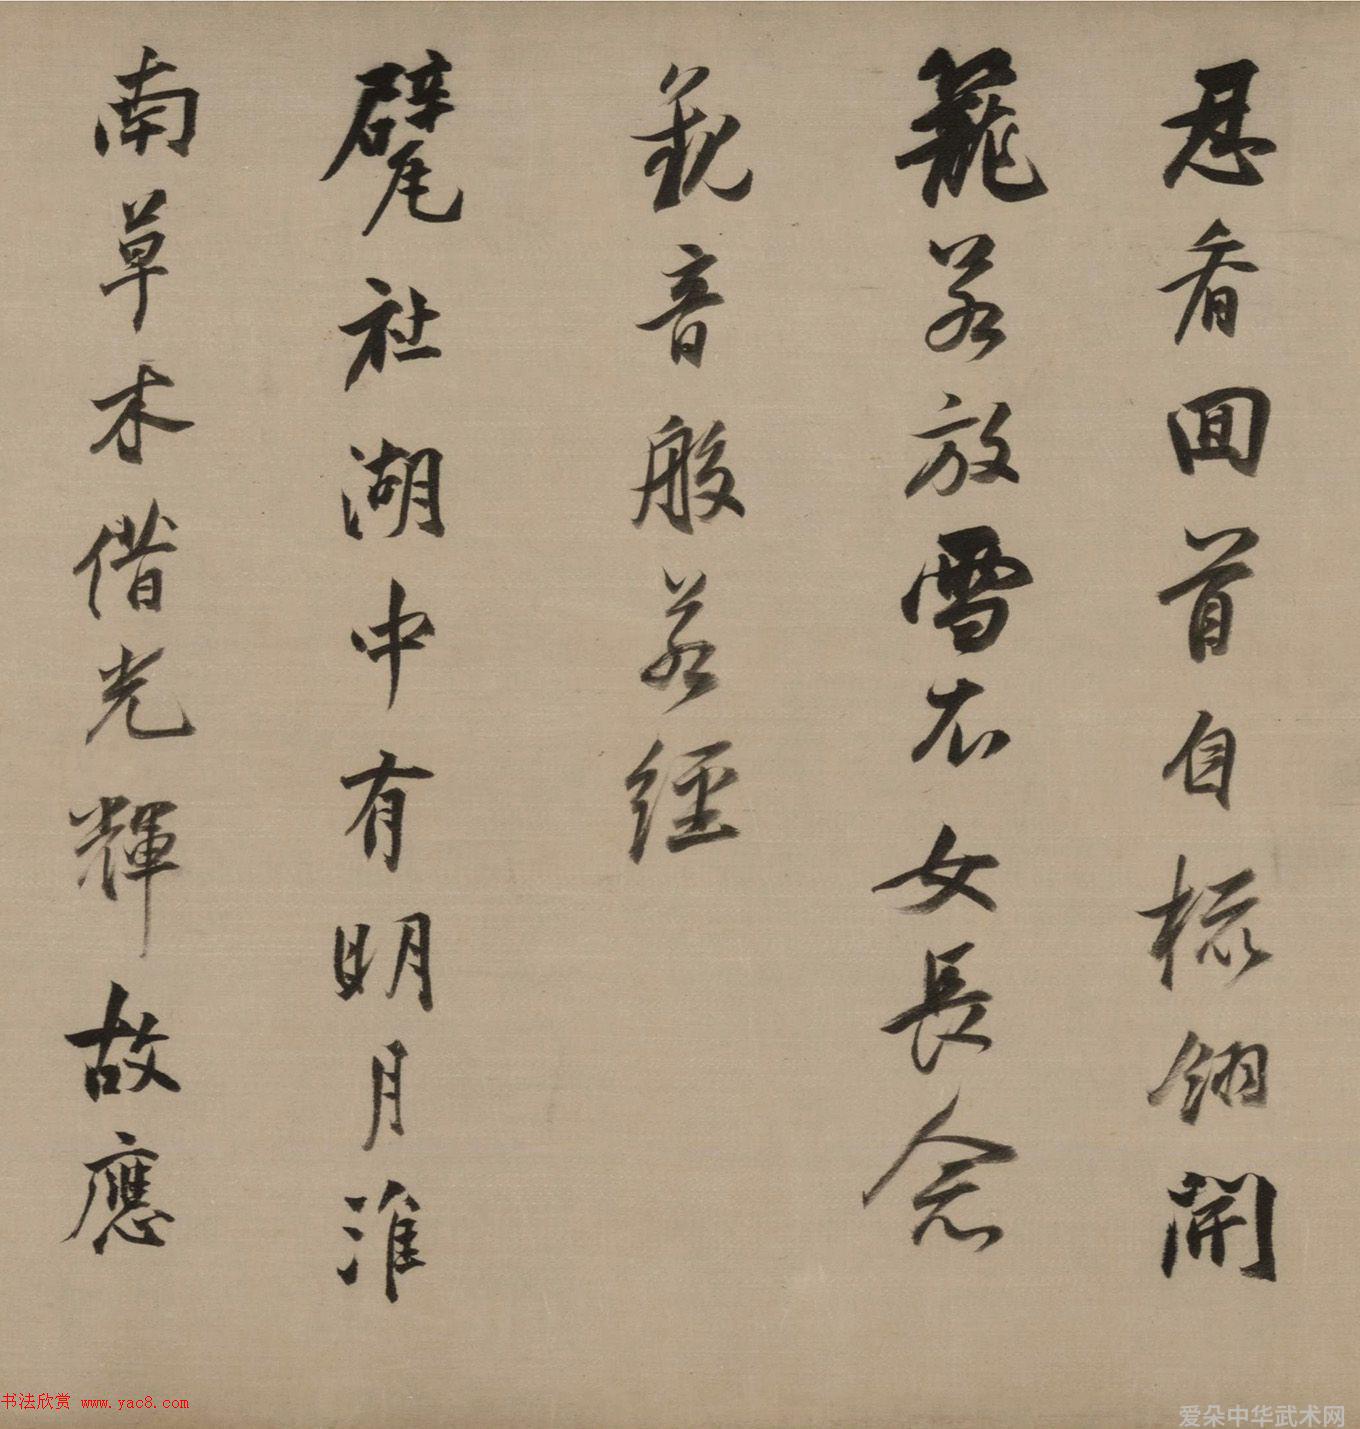 忍看回首自梳翎開
籠若放雪衣女長念
觀音般若經
甓社湖中有明月淮
南草木借光輝故應
书法欣赏 www.yac8.com
爱朵中华武术网